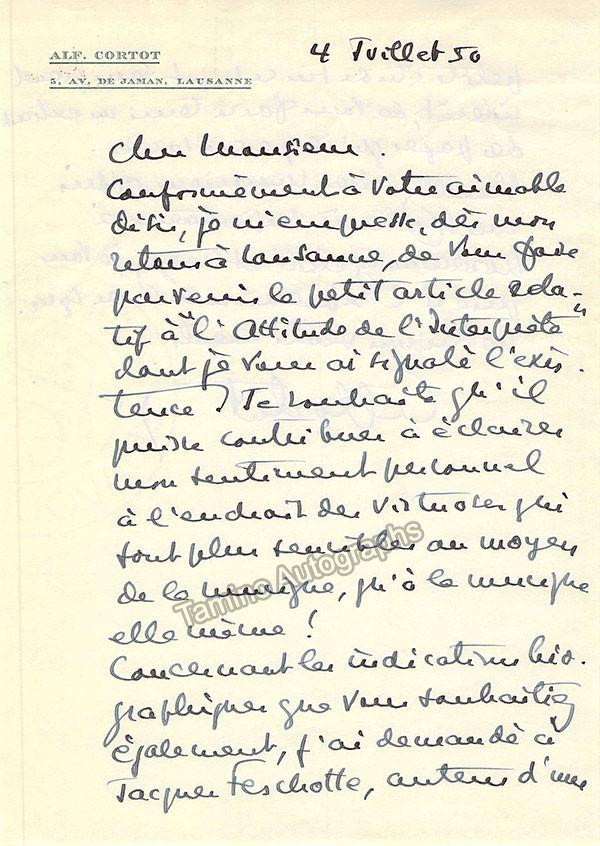 ALF. CORTOT
5, AV. DE JAMAN, LAUSANNE
4 Juillet 50
Cher Monsieur.
Conformément à votre aimable
désir, je m'empresse, dès mon
retour à Lausanne, de vous faire
parvenir le petit article rela-
tif à "l'Attitude de l'Interprète"
dont je vous ai signalé l'exis-
tence. Je souhaite qu'il
puisse contribuer à éclairer
mon sentiment personnel
à l'endroit des virtuoses qui
sont plus sensibles au moyen
de la musique, qu'à la musique
elle même !
Concernant les indications bio-
graphiques que vous souhaitiez
également, j'ai demandé à
Jacques Feschotte, auteur d'une
Tamino Autographs